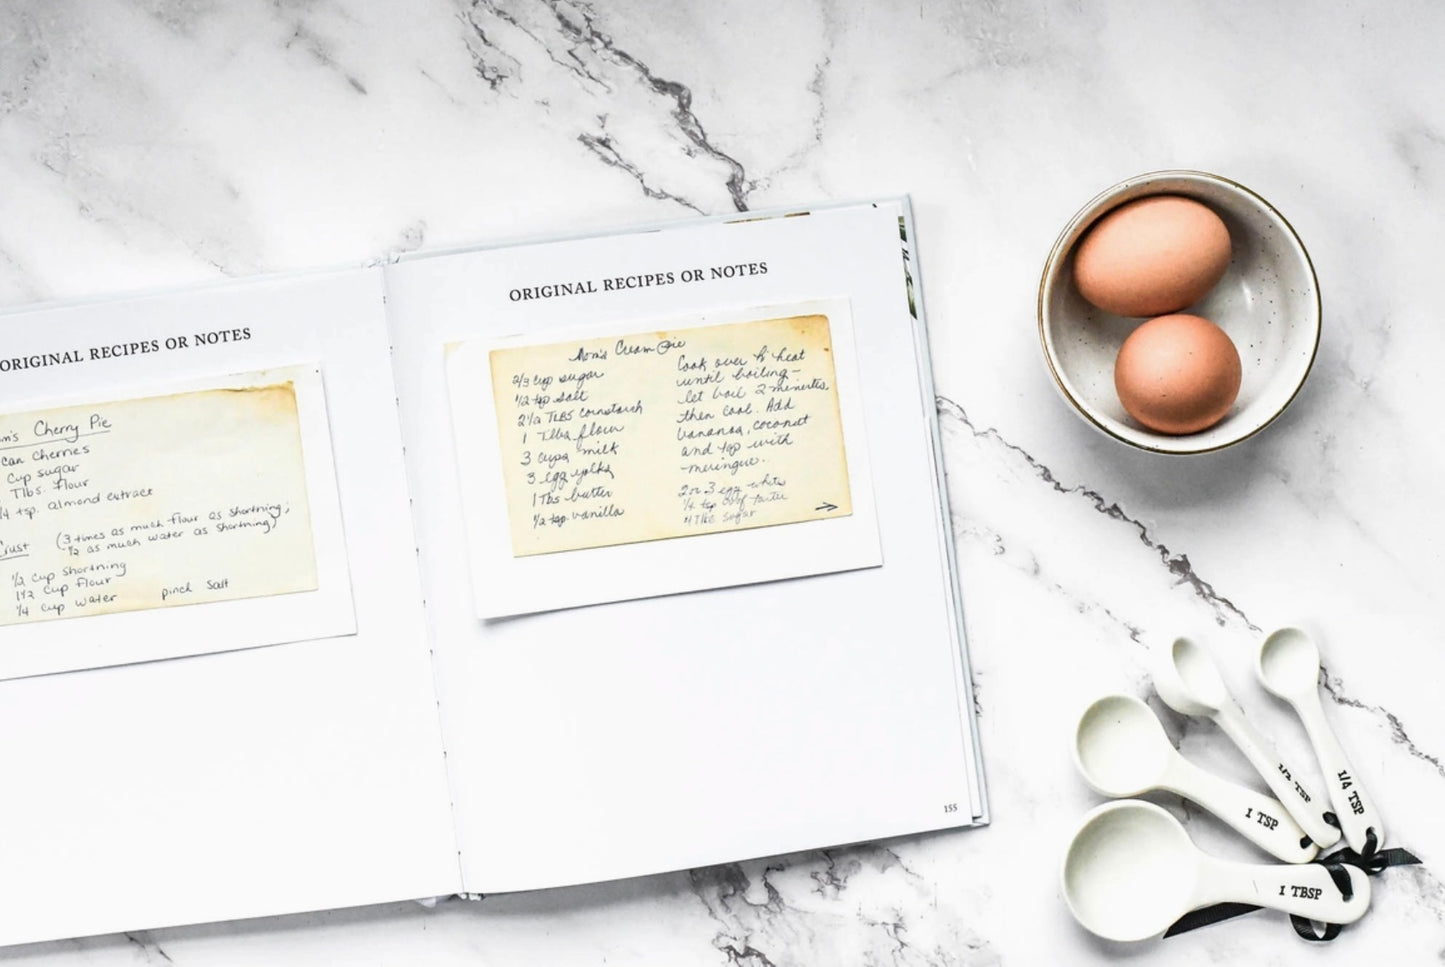 ORIGINAL RECIPES OR NOTES
Cherry Pie
can cherries
cup sugar
Tlbs. flour
1/4 tsp. almond extract
Crust (3 times as much flour as shortning;
1/2 as much water as shortning)
1/2 cup shortning
1 1/2 cup flour
1/4 cup water pinch salt
ORIGINAL RECIPES OR NOTES
Mom's Cream Pie
2/3 cup sugar
1/2 tsp salt
2 1/2 TLBS cornstarch
1 Tlbs flour
3 cups milk
3 egg yolks
1 Tbs butter
1/2 tsp vanilla
Cook over heat
until boiling -
let boil 2 minutes,
then cool. Add
bananas, coconut
and top with
meringue.
2 or 3 egg whites
1/4 tsp tarter
4 sugar
155
1/4 TSP
1/2 TSP
1 TSP
1 TBSP